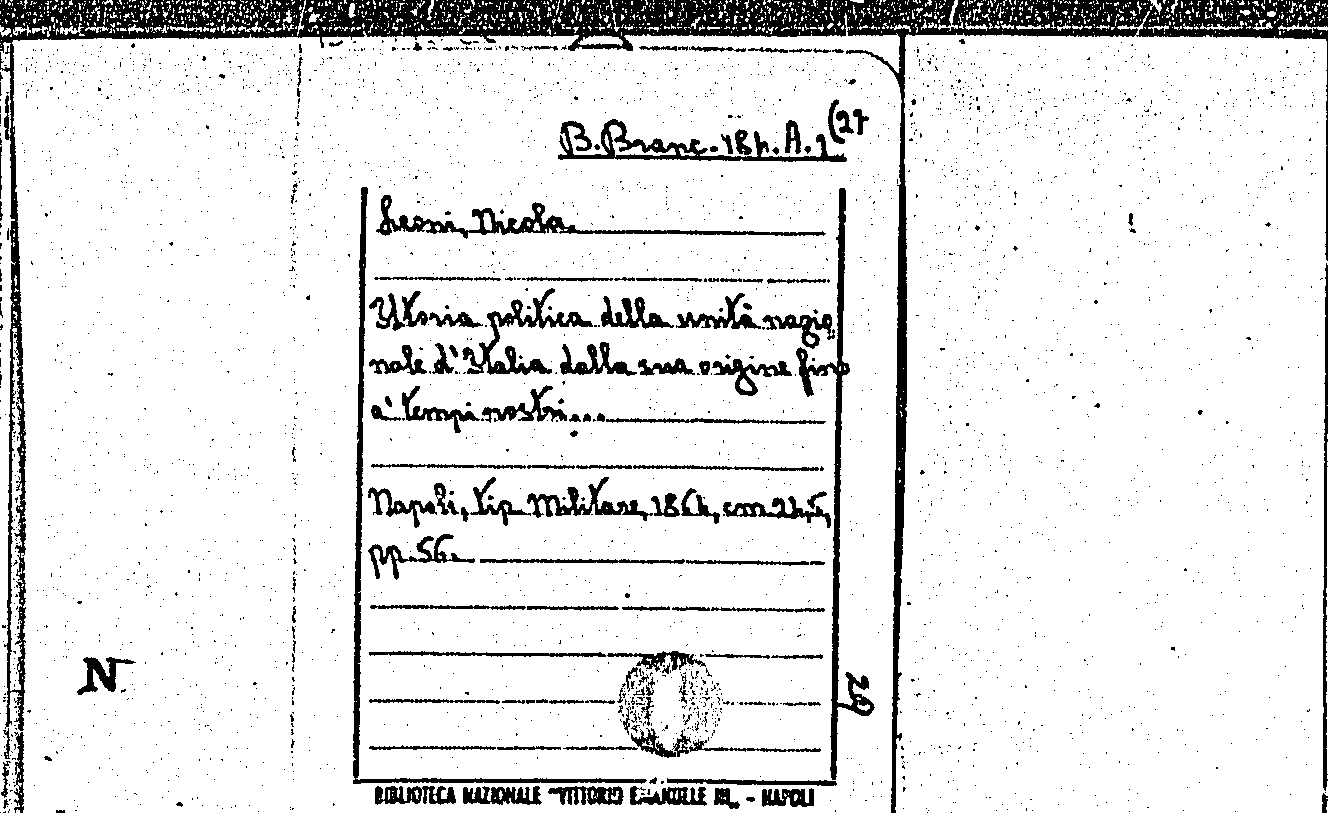 B. Branc. 184. A. 1 (27
Leoni, Nicola.
Istoria politica della unità nazio
nale d'Italia dalla sua origine fino
a' tempi nostri...
Napoli, tip. Militare, 1864, cm. 24,5,
pp. 56.
N
29
BIBLIOTECA NAZIONALE "VITTORIO EMANUELE III" - NAPOLI